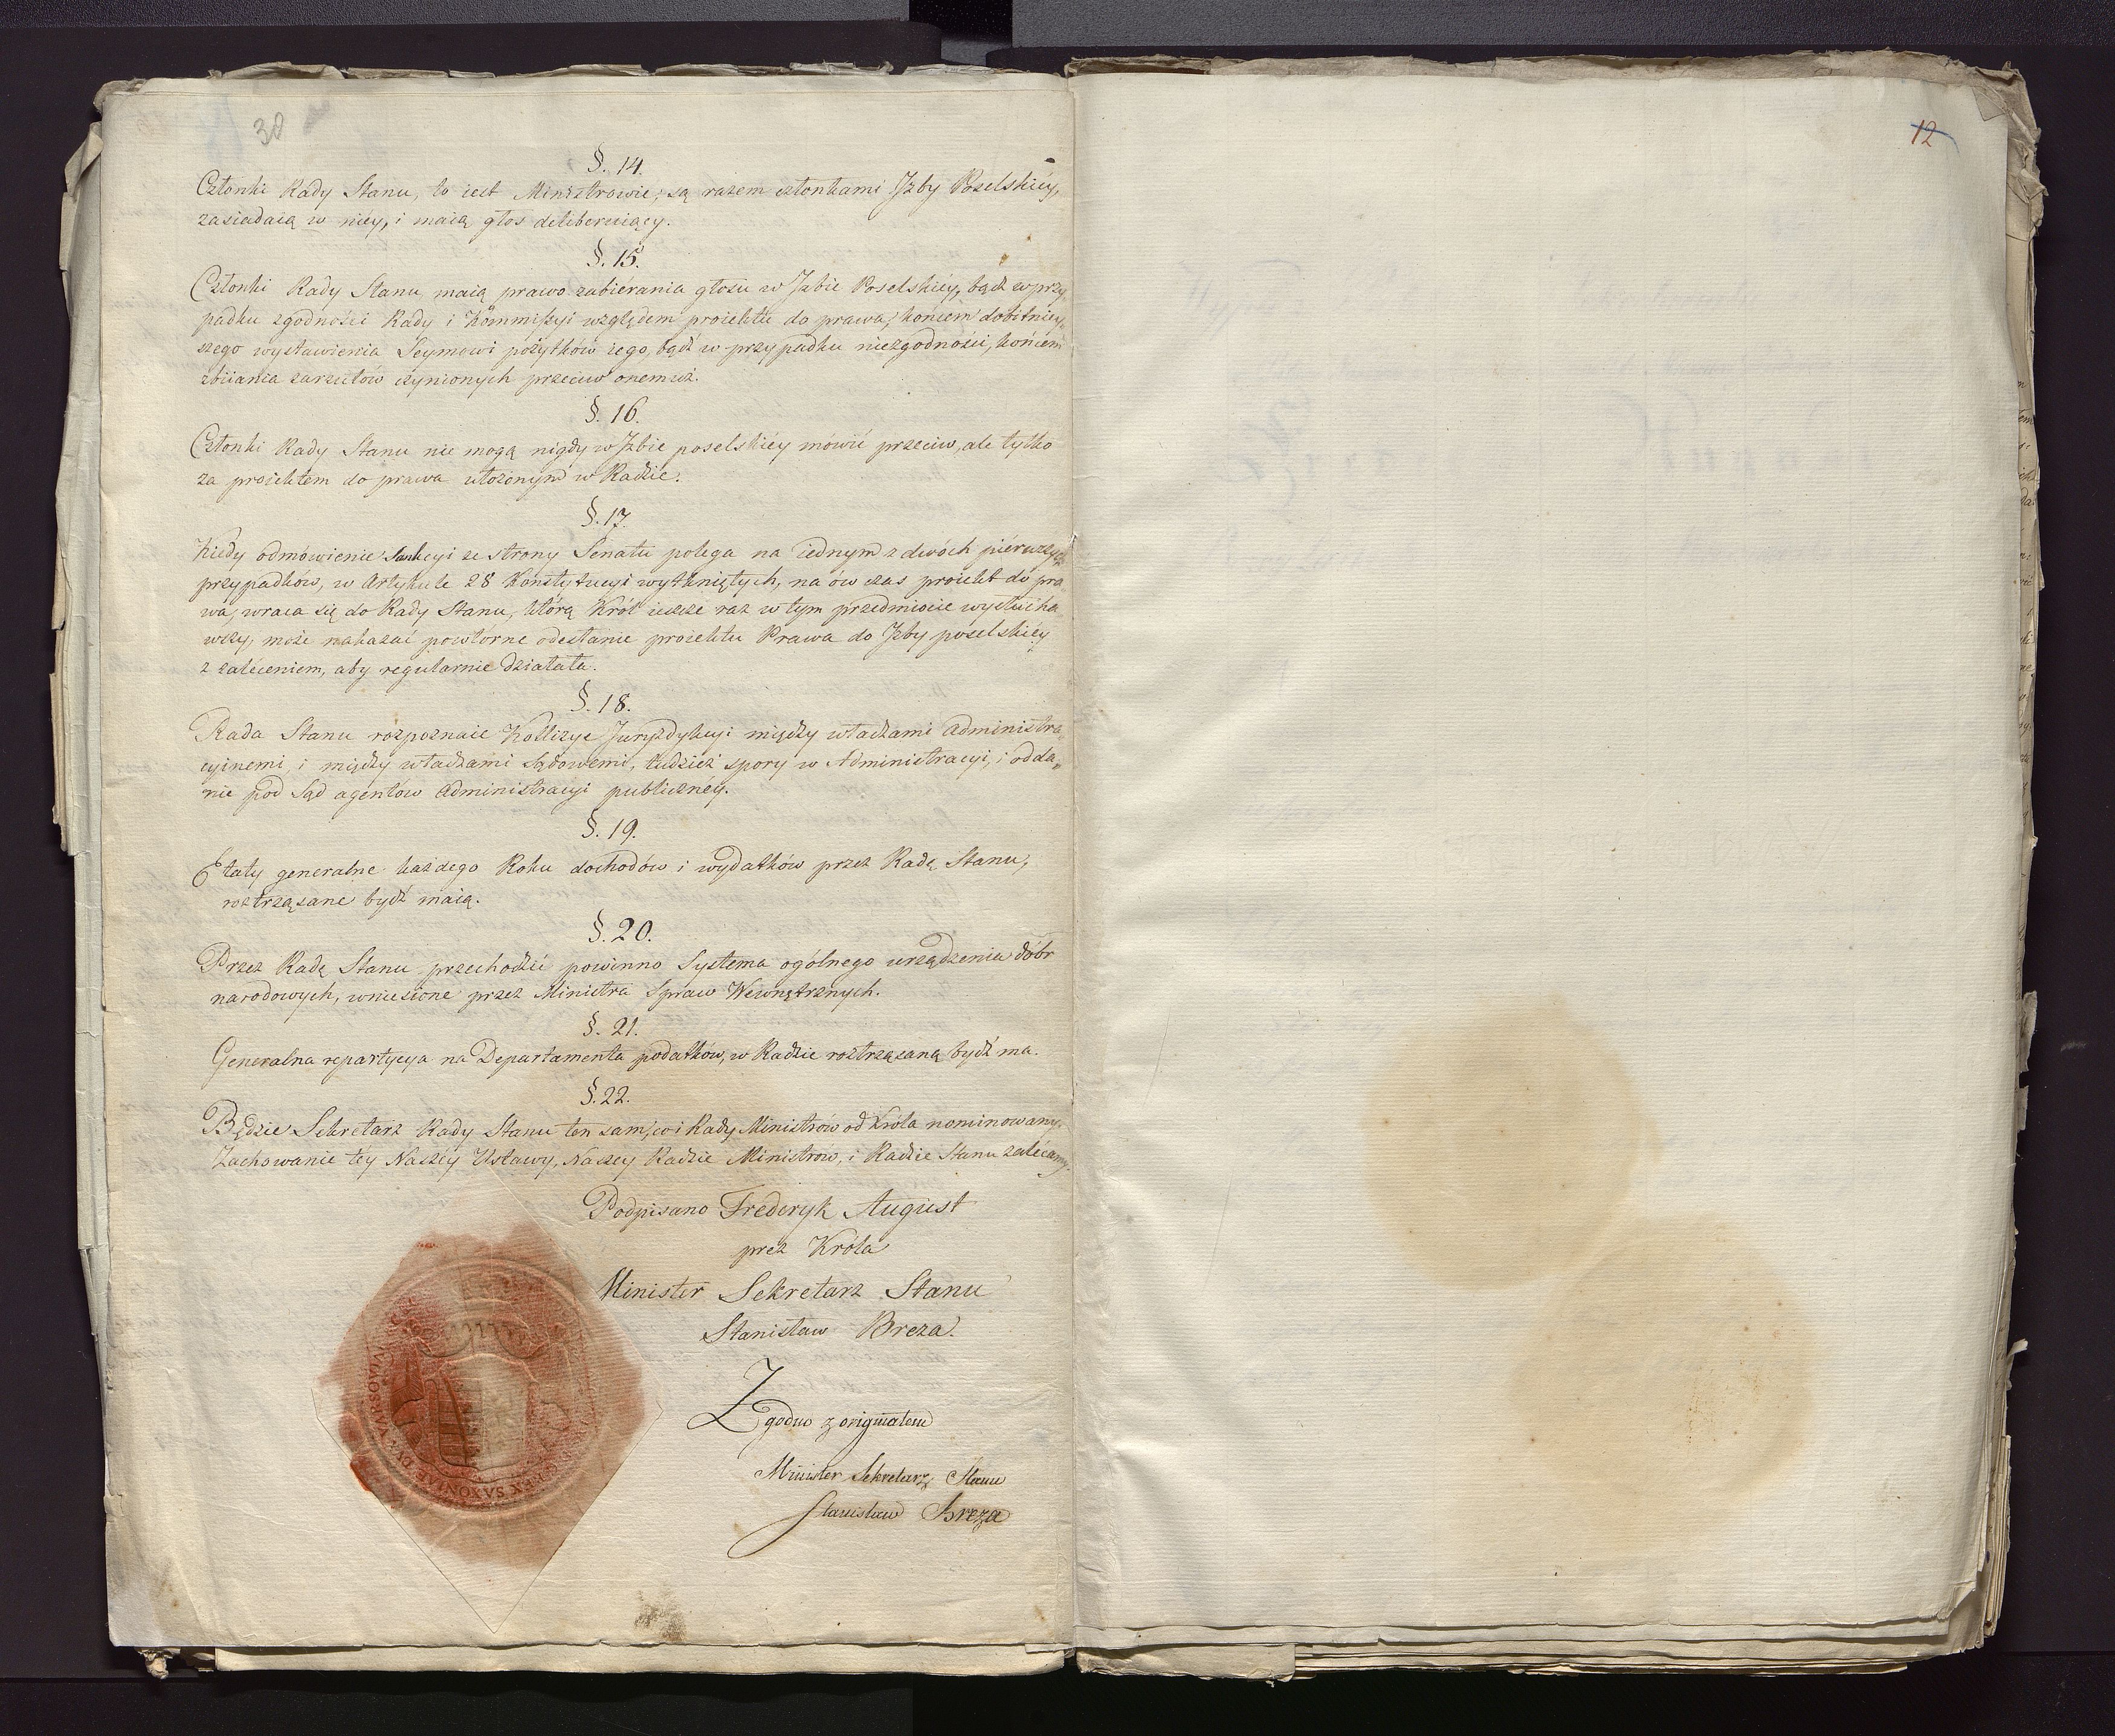 38
§. 14.
Członki Rady Stanu, to iest Ministrowie, są razem członkami Jzby Poselskiéy,
zasiadaią w niey, i maią głos deliberuiący.
§. 15.
Członki Rady Stanu, maią prawo zabiérania głosu w Jzbie Poselskiéy, bądź w przy„
padku zgodności Rady i Kommissyi względem proiektu do prawa, końcem dobitniey„
szego wystawienia Seymowi pożytków iego, bądź w przypadku niezgodności, końcem
zbiiania zarzutów czynionych przeciw onemuż.
§. 16.
Członki Rady Stanu nie mogą nigdy w Jzbie poselskiéy mowić przeciw, ale tylko
za proiektem do prawa ułożonym w Radzie.
§. 17.
Kiedy odmówienie Sankcyi ze strony Senatu polega na iednym z dwóch piérwszych
przypadków, w Artykule 28 Konstytucyi wytkniętych, na ów czas proiekt do pra„
wa, wraca się do Rady Stanu, którą Król ieszcze raz w tym przedmiocie wysłucha„
wszy, może nakazać powtórne odesłanie proiektu Prawa do Jzby poselskiéy
z zaléceniem, aby regularnie działała.
§. 18.
Rada Stanu rozpoznaie Kollizye Juryzdykcyi między władzami administra„
cyinemi i między władzami Sądowemi, tudzież spory w Administracyi, i odda„
nie pod Sąd agentów administracyi publicznéy.
§. 19.
Etaty generalne każdego Roku dochodów i wydatków przez Radę Stanu,
roztrząsane bydź maią.
§. 20.
Przez Radę Stanu przechodzić powinno Systema ogólnego urządzenia dóbr
narodowych, wniesione przez Ministra Spraw Wewnętrznych.
§. 21.
Generalna repartycya na Departamenta podatków, w Radzie roztrząsaną bydź ma.
§. 22.
Będzie Sekretarz Rady Stanu ten sam, co i Rady Ministrów od Króla nominowany.
Zachowanie téy Naszéy Ustawy, Naszey Radzie Ministrów, i Radzie Stanu zalécamy.
Podpisano Frederyk August
prez Króla
Minister Sekretarz Stanu
Stanisław Breza.
Zgodno z originałem
Minister Sekretarz Stanu
Stanisław Breza
REX SAXONIAE DUX VARSOVIAE
12